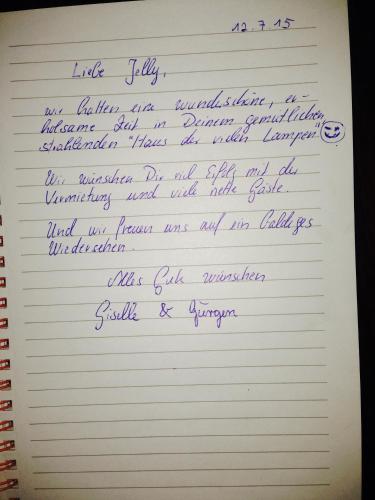 12.7.15
Liebe Jelly,
wir hatten eine wunderschöne, er-
holsame Zeit in Deinem gemütlichen,
strahlenden "Haus der vielen Lampen"
Wir wünschen Dir viel Erfolg mit der
Vermietung und viele nette Gäste.
Und wir freuen uns auf ein baldiges
Wiedersehen.
Alles Gute wünschen
Giselle & Jürgen